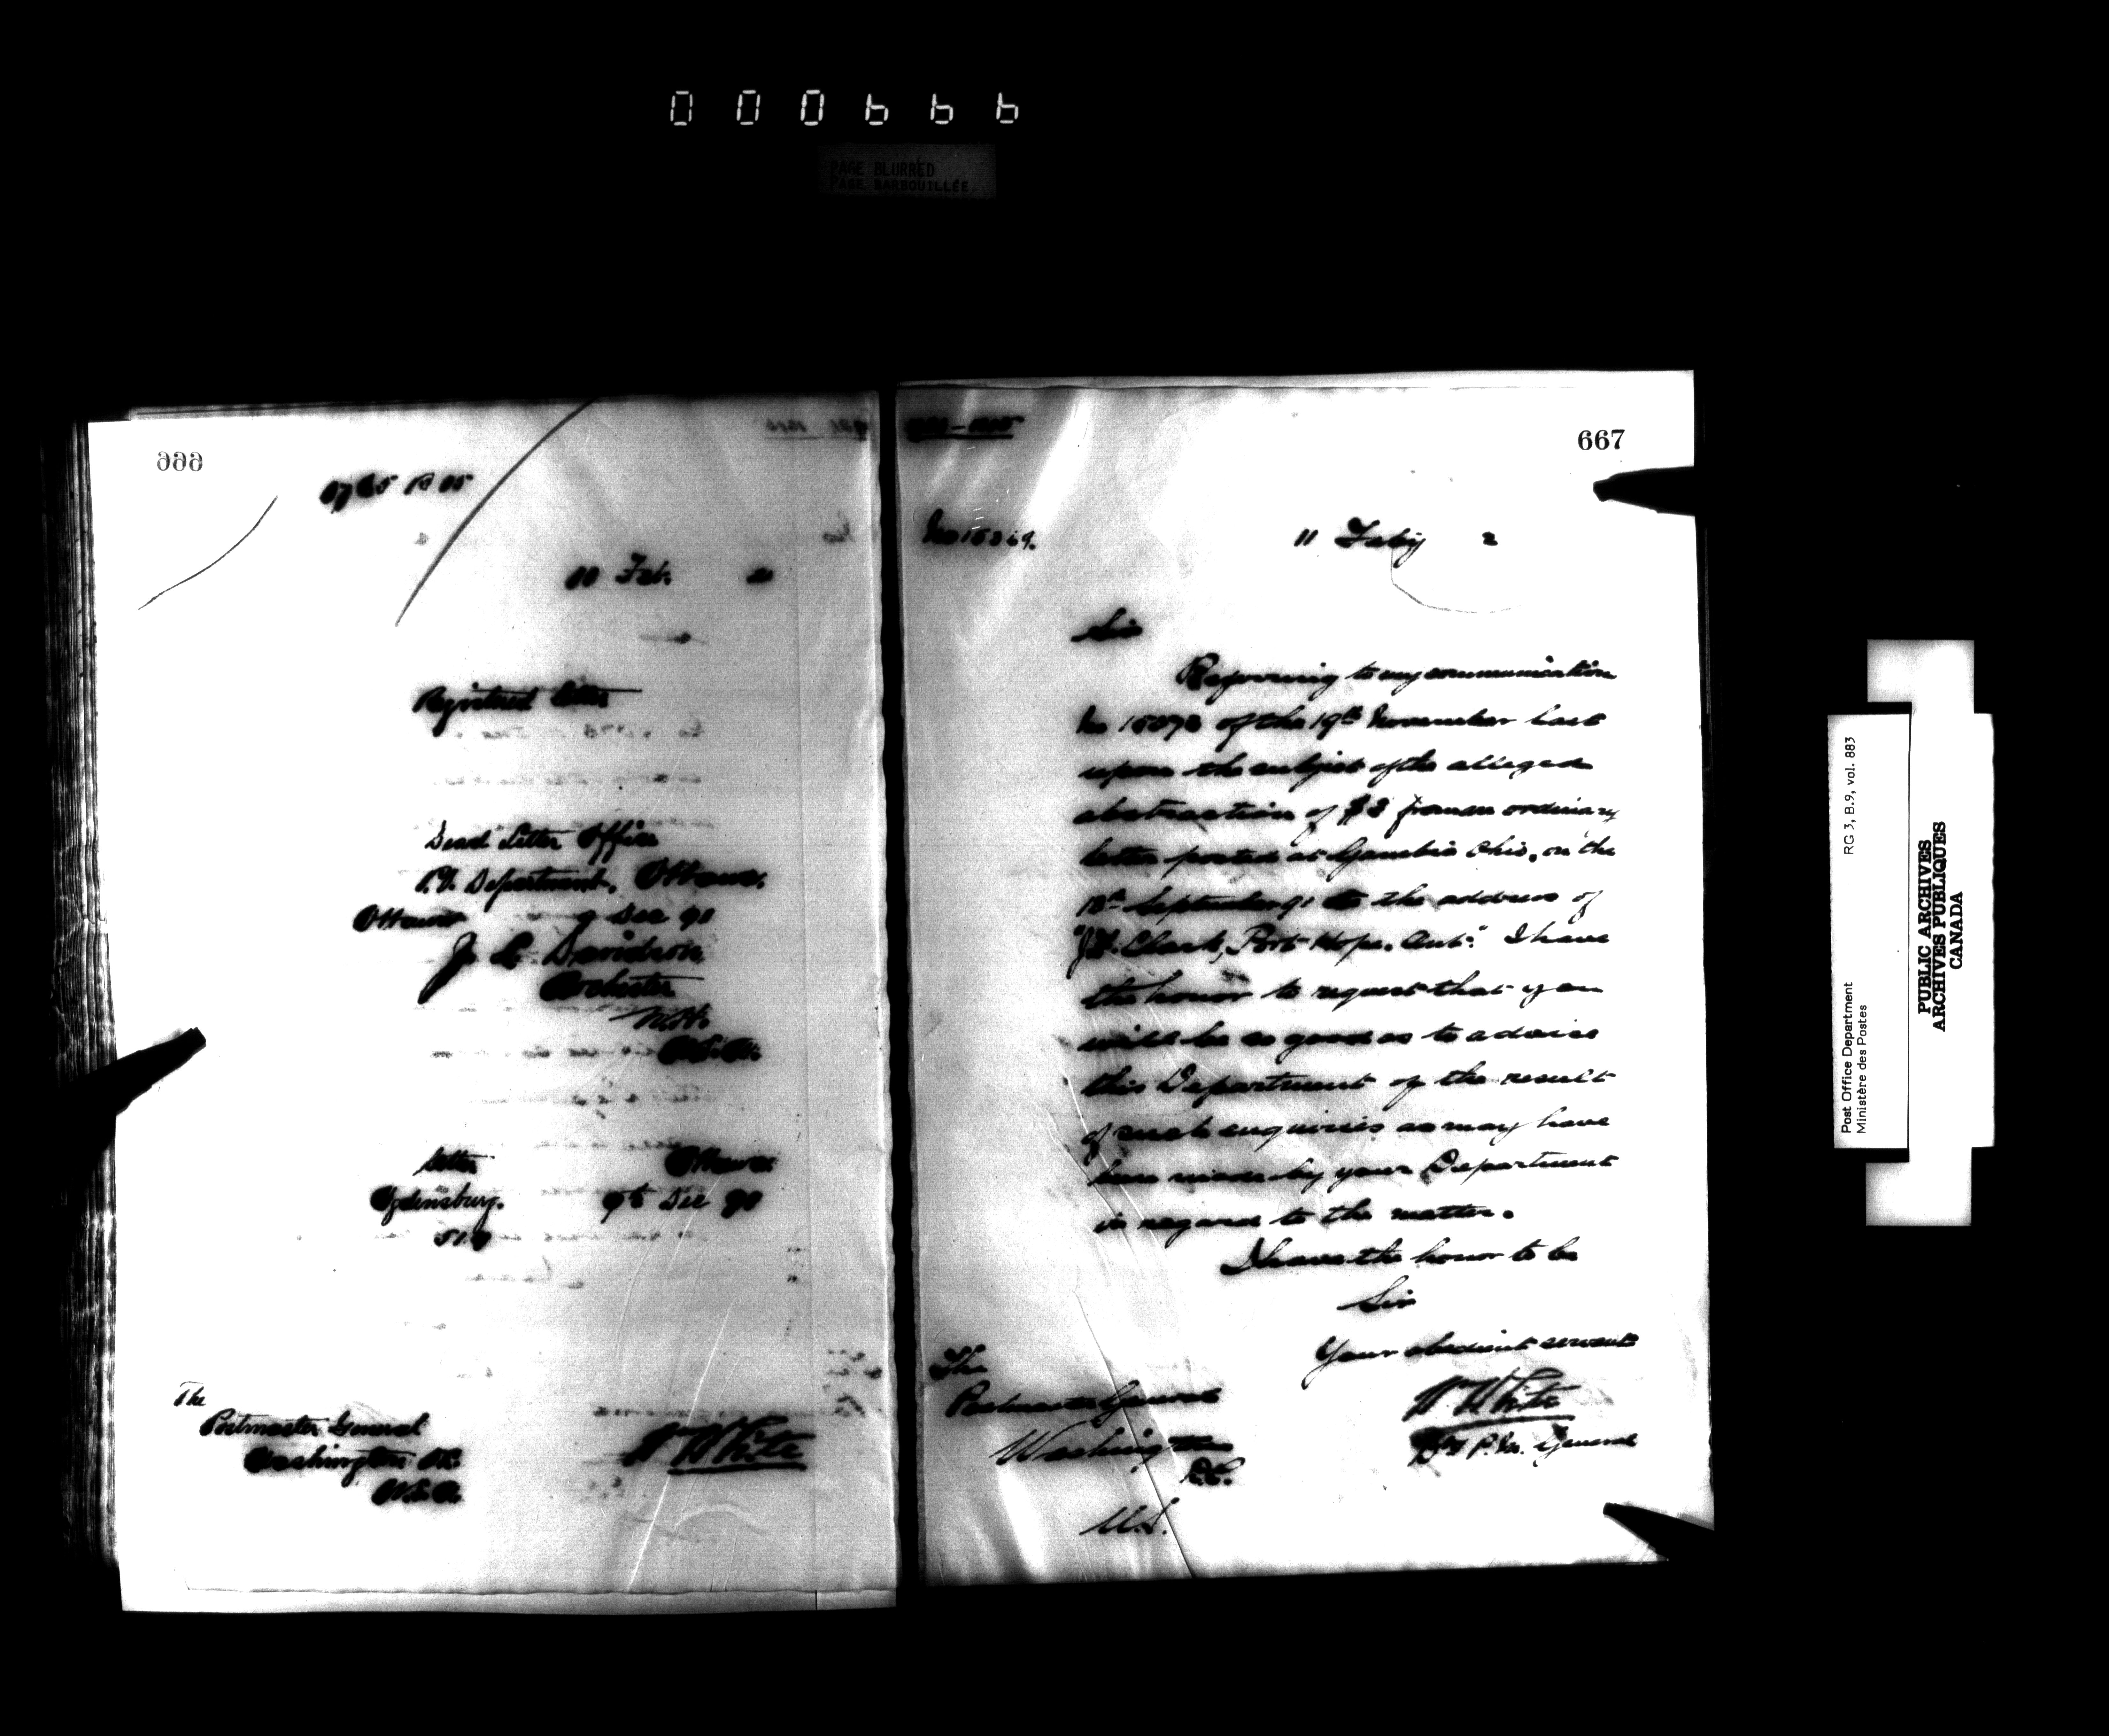 000666
PAGE BLURRED
PAGE BARBOUILLÉE
666
Feb.
Registered Letter
Dead Letter Office
P.O. Department, Ottawa.
Ottawa 9 Dec 90
J. L. Davidson
Rochester
N.H.
U.S.A.
Letter Ottawa
Ogdensburg. 9th Dec 90
The
Postmaster General
Washington D.C.
U.S.A.
W White
667
11 Feby 2
Sir
Referring to my communication
of the 19th November last
upon the subject of the alleged
abstraction of $2 from an ordinary
letter posted at Gambia Ohio, on the
September 91 to the address of
Clark, Port Hope, Ont." I have
the honor to request that you
will be so good as to advise
this Department of the result
of such enquiries as may have
been made by your Department
in regard to the matter.
I have the honor to be
Sir
Your obedient servant
W White
Dy P. M. General
The
Postmaster General
Washington
D.C.
U.S.
Post Office Department
Ministère des Postes
RG 3, B.9, vol. 883
PUBLIC ARCHIVES
ARCHIVES PUBLIQUES
CANADA